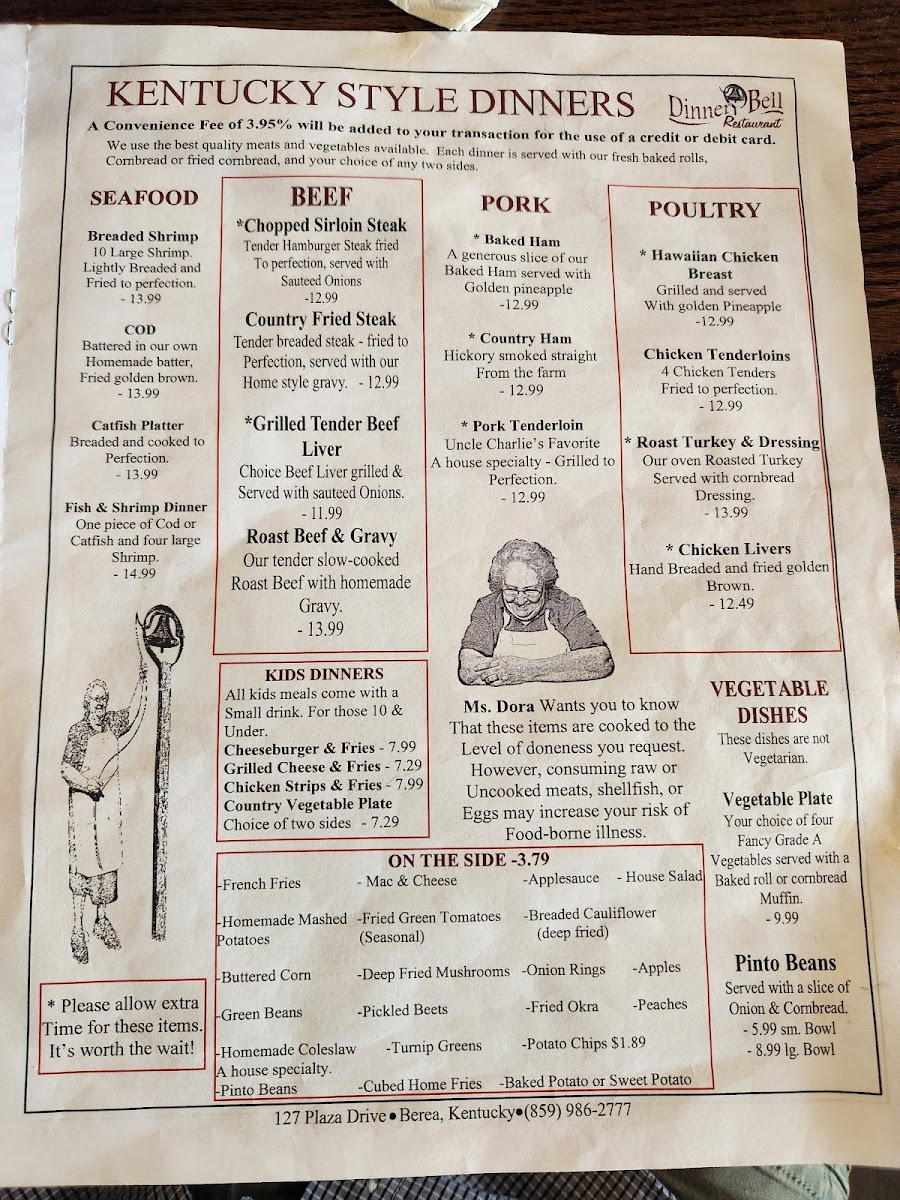 KENTUCKY STYLE DINNERS
Dinner Bell
Restaurant
A Convenience Fee of 3.95% will be added to your transaction for the use of a credit or debit card.
We use the best quality meats and vegetables available. Each dinner is served with our fresh baked rolls,
Cornbread or fried cornbread, and your choice of any two sides.
SEAFOOD
Breaded Shrimp
10 Large Shrimp.
Lightly Breaded and
Fried to perfection.
- 13.99
COD
Battered in our own
Homemade batter,
Fried golden brown.
- 13.99
Catfish Platter
Breaded and cooked to
Perfection.
- 13.99
Fish & Shrimp Dinner
One piece of Cod or
Catfish and four large
Shrimp.
- 14.99
BEEF
*Chopped Sirloin Steak
Tender Hamburger Steak fried
To perfection, served with
Sauteed Onions
-12.99
Country Fried Steak
Tender breaded steak - fried to
Perfection, served with our
Home style gravy. - 12.99
*Grilled Tender Beef
Liver
Choice Beef Liver grilled &
Served with sauteed Onions.
- 11.99
Roast Beef & Gravy
Our tender slow-cooked
Roast Beef with homemade
Gravy.
- 13.99
PORK
* Baked Ham
A generous slice of our
Baked Ham served with
Golden pineapple
-12.99
* Country Ham
Hickory smoked straight
From the farm
- 12.99
* Pork Tenderloin
Uncle Charlie's Favorite
A house specialty - Grilled to
Perfection.
- 12.99
POULTRY
* Hawaiian Chicken
Breast
Grilled and served
With golden Pineapple
-12.99
Chicken Tenderloins
4 Chicken Tenders
Fried to perfection.
- 12.99
* Roast Turkey & Dressing
Our oven Roasted Turkey
Served with cornbread
Dressing.
- 13.99
* Chicken Livers
Hand Breaded and fried golden
Brown.
- 12.49
KIDS DINNERS
All kids meals come with a
Small drink. For those 10 &
Under.
Cheeseburger & Fries - 7.99
Grilled Cheese & Fries - 7.29
Chicken Strips & Fries - 7.99
Country Vegetable Plate
Choice of two sides - 7.29
Ms. Dora Wants you to know
That these items are cooked to the
Level of doneness you request.
However, consuming raw or
Uncooked meats, shellfish, or
Eggs may increase your risk of
Food-borne illness.
VEGETABLE
DISHES
These dishes are not
Vegetarian.
Vegetable Plate
Your choice of four
Fancy Grade A
Vegetables served with a
Baked roll or cornbread
Muffin.
- 9.99
Pinto Beans
Served with a slice of
Onion & Cornbread.
- 5.99 sm. Bowl
- 8.99 lg. Bowl
* Please allow extra
Time for these items.
It's worth the wait!
ON THE SIDE -3.79
-French Fries - Mac & Cheese -Applesauce - House Salad
-Homemade Mashed -Fried Green Tomatoes -Breaded Cauliflower
Potatoes (Seasonal) (deep fried)
-Buttered Corn -Deep Fried Mushrooms -Onion Rings -Apples
-Green Beans -Pickled Beets -Fried Okra -Peaches
-Homemade Coleslaw -Turnip Greens -Potato Chips $1.89
A house specialty.
-Pinto Beans -Cubed Home Fries -Baked Potato or Sweet Potato
127 Plaza Drive • Berea, Kentucky•(859) 986-2777